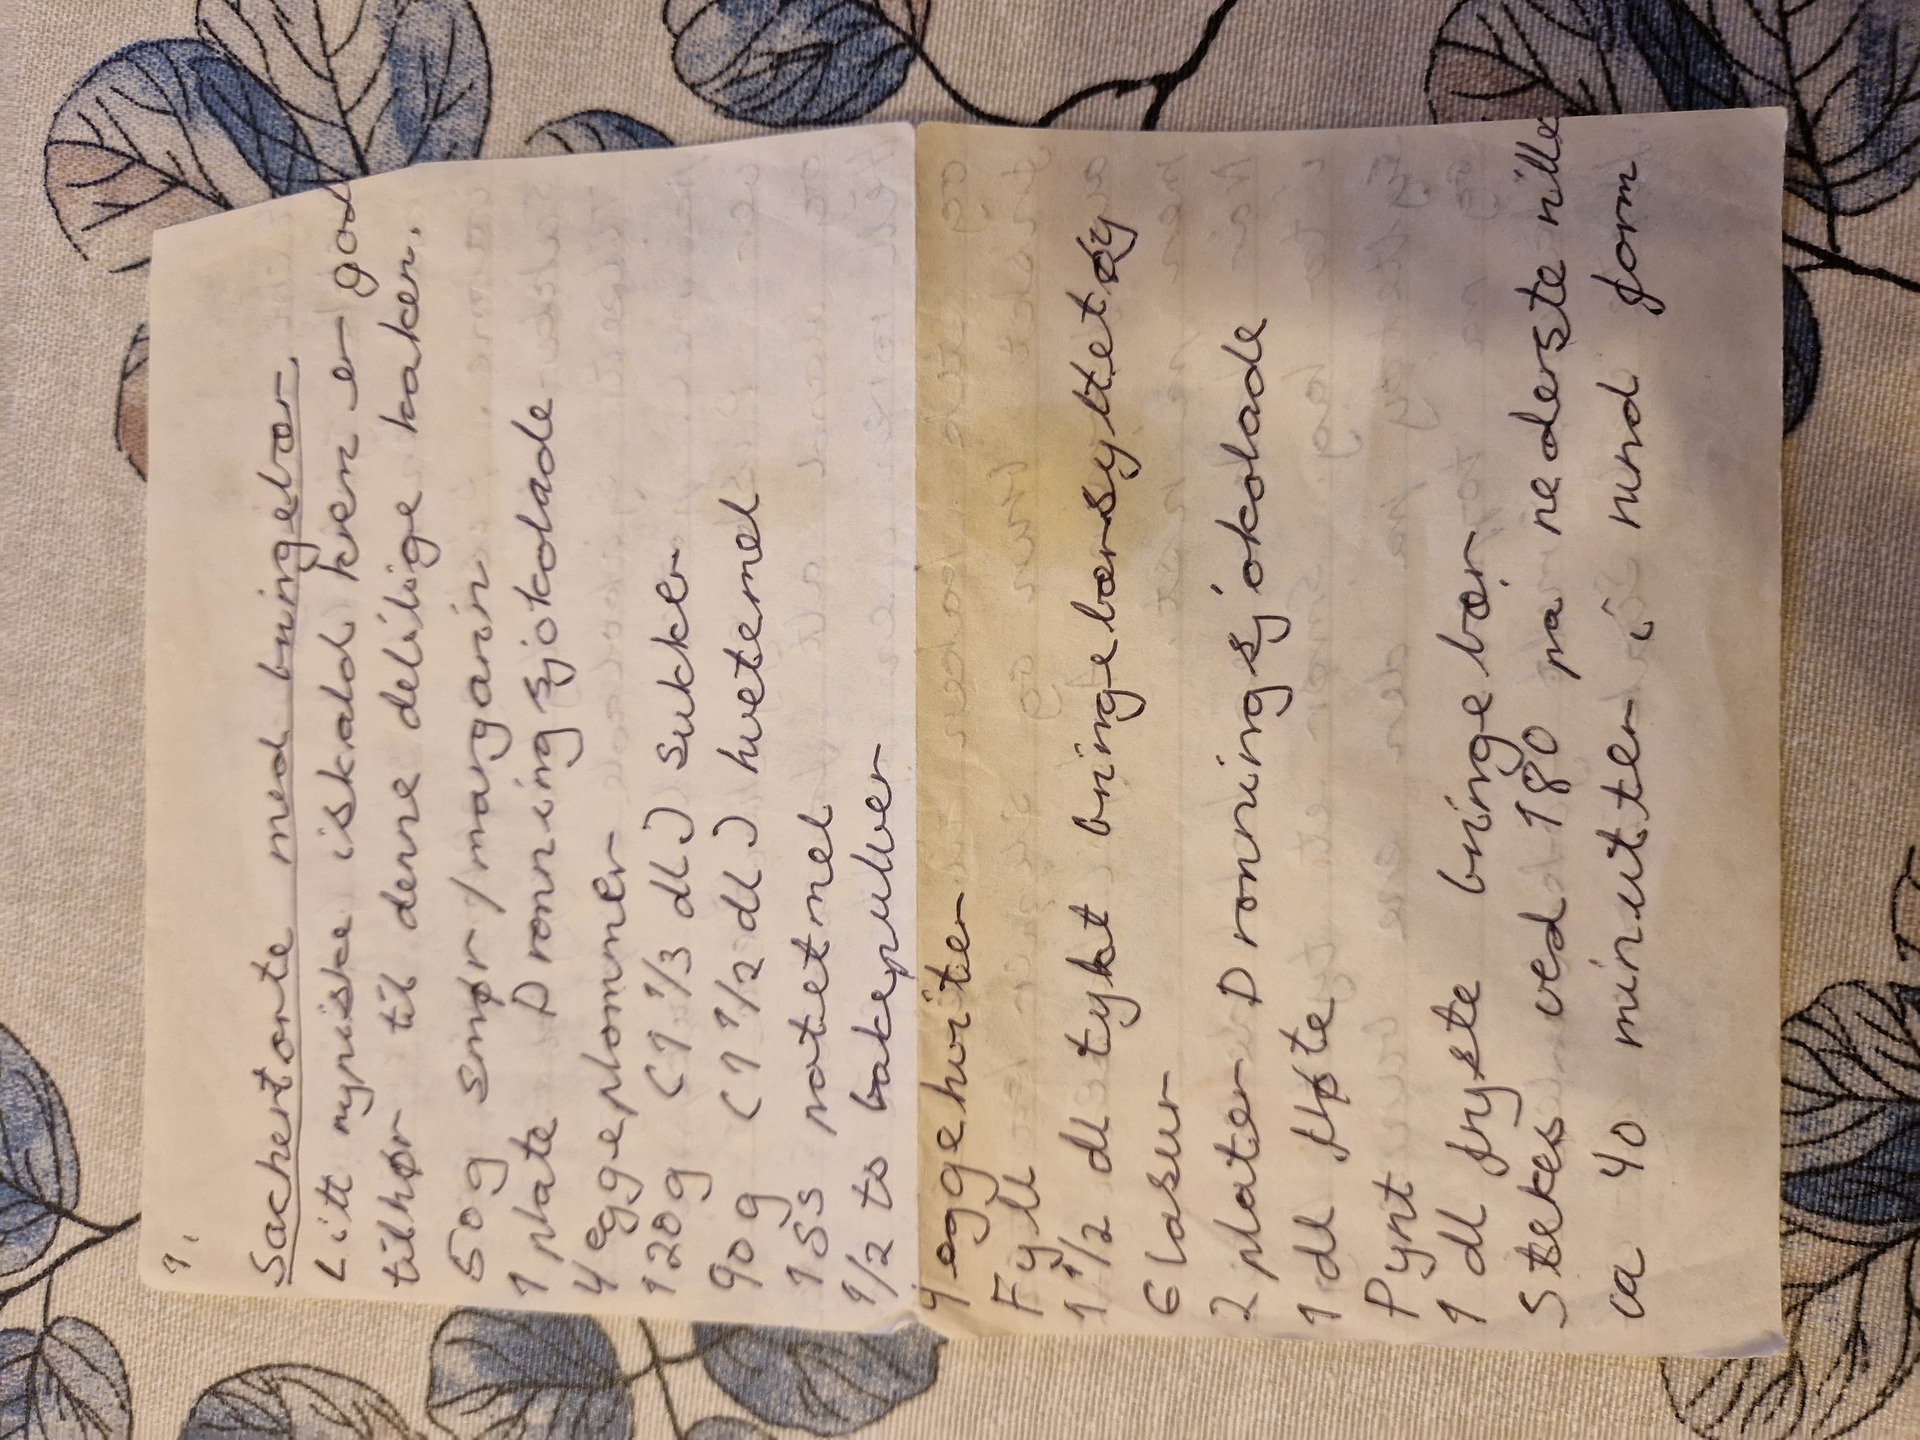 1.
Sachertorte med bringebær.
Litt nypiske iskald krem er god
tilhør til denne delilige kaken.
50g smør/margarin
1 plate Dronningsjokolade
4 eggeplommer
120g (1 1/3 dl) sukker
90g (1 1/2 dl) hvetemel
1 ss potetmel
1/2 ts bakepulver
4 eggehviter
Fyll
1 1/2 dl tykt bringebærsyltetøy
Glasur
2 plater Dronningsjokolade
1 dl fløte
Pynt
1 dl fryste bringebær
Stekes ved 180 på nederste rille
ca 40 minutter i rund form